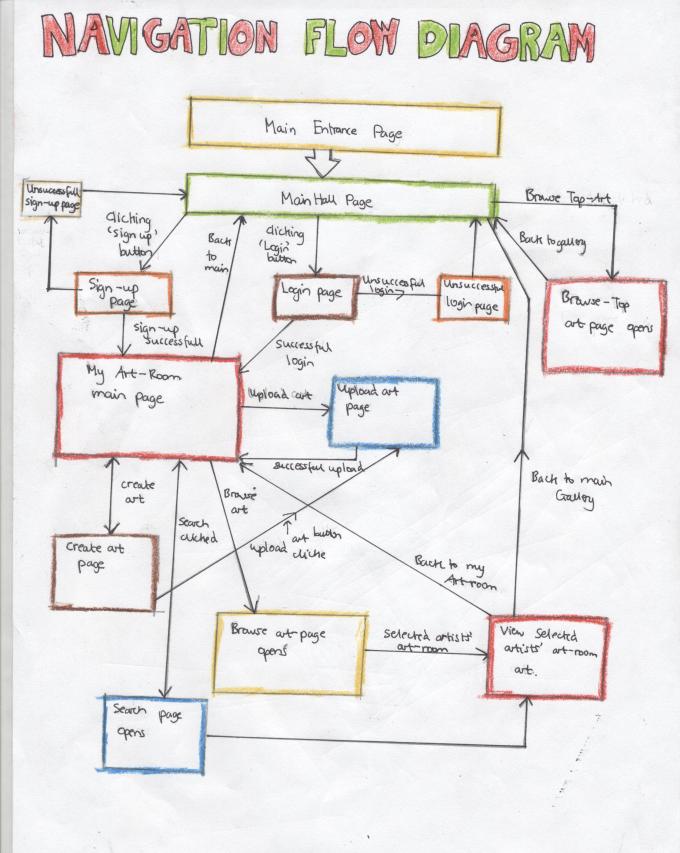 NAVIGATION FLOW DIAGRAM
Main Entrance Page
Unsuccessful
sign-up page
Main Hall Page
Browse Top-Art
Clicking
'sign up'
button
Back
to
main
Clicking
'Login'
button
Back to gallery
Sign-up
page
Login page
Unsuccessful
login
Unsuccessful
login page
Browse-Top
art-page opens
sign-up
successful
Successful
login
My Art-Room
main page
Upload art
Upload art
page
successful upload
create
art
Search
clicked
Browse
art
Back to main
Gallery
art button
upload cliche
Create art
page
Back to my
Art-room
Browse art-page
opens
Selected artists'
art-room
View Selected
artists' art-room
art.
Search page
opens